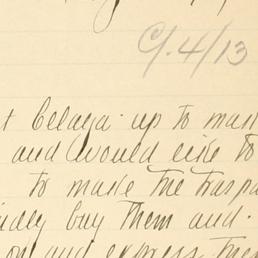 9/4/13
t Celaya up to mas
and would like to
to make the traspa
indly buy them and
on and express them